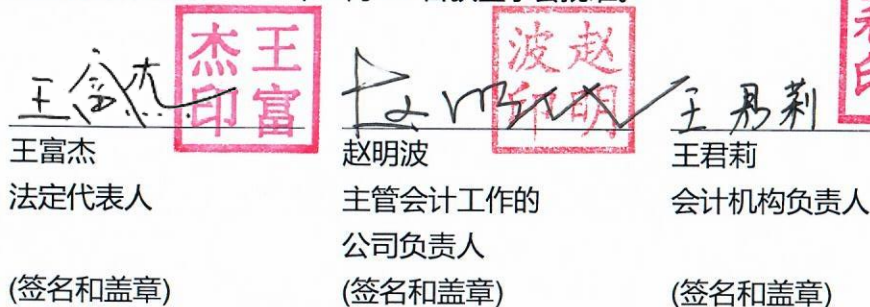 王富杰
王富杰印
赵明波
赵明波印
王君莉
王富杰
法定代表人
(签名和盖章)
赵明波
主管会计工作的
公司负责人
(签名和盖章)
王君莉
会计机构负责人
(签名和盖章)